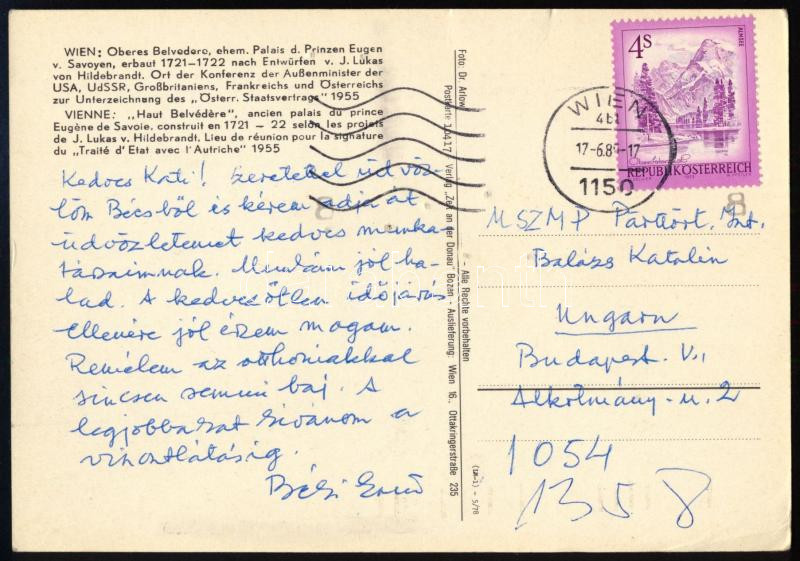 WIEN: Oberes Belvedere, ehem. Palais d. Prinzen Eugen
v. Savoyen, erbaut 1721–1722 nach Entwürfen v. J. Lukas
von Hildebrandt. Ort der Konferenz der Außenminister der
USA, UdSSR, Großbritaniens, Frankreichs und Österreichs
zur Unterzeichnung des „Österr. Staatsvertrags" 1955
VIENNE: „Haut Belvédère", ancien palais du prince
Eugène de Savoie, construit en 1721 – 22 selon les projets
de J. Lukas v. Hildebrandt, Lieu de réunion pour la signature
du „Traité d'Etat avec l'Autriche" 1955
Kedves Kati! Szeretettel üdvöz-
löm Bécsből és kérem adja át
üdvözletemet kedves munka-
társaimnak. Munkám jól ha-
lad. A kedvezőtlen időjárás
ellenére jól érzem magam.
Remélem az otthoniakkal
sincsen semmi baj. A
legjobbakat kívánom a
viszontlátásig.
Foto: Dr. Arlow
Postkarte 10417 Verlag „Zeit an der Donau" Bozen - Auslieferung: Wien 16., Ottakringerstraße 235
- Alle Rechte vorbehalten
5/78
4S
ALMSEE
REPUBLIK ÖSTERREICH
WIEN
17-6.8
-17
1150
8
MSZMP Párttört. Int.
Balázs Katalin
Ungarn
Budapest. V.,
Alkotmány-u. 2
1054
13 5 8